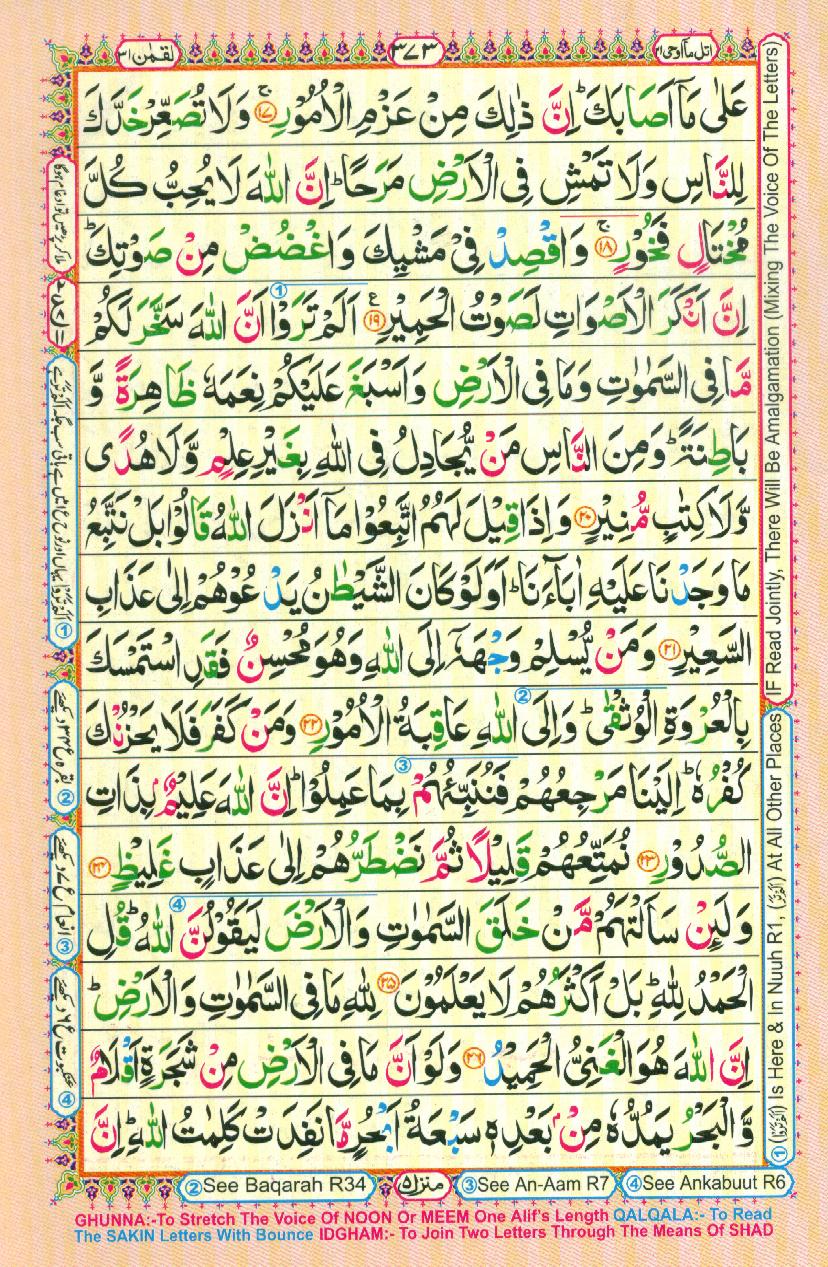 اتل ما اوحی ۲۱
۳۷۳
لقمٰن ۳۱
عَلٰى مَاۤ اَصَابَكَ ؕ اِنَّ ذٰلِكَ مِنْ عَزْمِ الْاُمُوْرِ ۚ‏ ﴿۱۷﴾ وَلَا تُصَعِّرْ خَدَّكَ
لِلنَّاسِ وَلَا تَمْشِ فِى الْاَرْضِ مَرَحًا ؕ اِنَّ اللّٰهَ لَا يُحِبُّ كُلَّ
مُخْتَالٍ فَخُوْرٍ ۚ‏ ﴿۱۸﴾ وَاقْصِدْ فِىْ مَشْيِكَ وَاغْضُضْ مِنْ صَوْتِكَ ؕ
اِنَّ اَنْكَرَ الْاَصْوَاتِ لَصَوْتُ الْحَمِيْرِ ﴿۱۹﴾ ع اَلَمْ تَرَوْا اَنَّ اللّٰهَ سَخَّرَ لَكُمْ
مَّا فِى السَّمٰوٰتِ وَمَا فِى الْاَرْضِ وَاَسْبَغَ عَلَيْكُمْ نِعَمَهٗ ظَاهِرَةً وَّ
بَاطِنَةً ؕ وَمِنَ النَّاسِ مَنْ يُّجَادِلُ فِى اللّٰهِ بِغَيْرِ عِلْمٍ وَّلَا هُدًى
وَّلَا كِتٰبٍ مُّنِيْرٍ ﴿۲۰﴾ وَاِذَا قِيْلَ لَهُمُ اتَّبِعُوْا مَاۤ اَنْزَلَ اللّٰهُ قَالُوْا بَلْ نَتَّبِعُ
مَا وَجَدْنَا عَلَيْهِ اٰبَآءَنَا ؕ اَوَلَوْ كَانَ الشَّيْطٰنُ يَدْعُوْهُمْ اِلٰى عَذَابِ
السَّعِيْرِ ﴿۲۱﴾ وَمَنْ يُّسْلِمْ وَجْهَهٗۤ اِلَى اللّٰهِ وَهُوَ مُحْسِنٌ فَقَدِ اسْتَمْسَكَ
بِالْعُرْوَةِ الْوُثْقٰى ؕ وَاِلَى اللّٰهِ عَاقِبَةُ الْاُمُوْرِ ﴿۲۲﴾ وَمَنْ كَفَرَ فَلَا يَحْزُنْكَ
كُفْرُهٗ ؕ اِلَيْنَا مَرْجِعُهُمْ فَنُنَبِّئُهُمْ بِمَا عَمِلُوْا ؕ اِنَّ اللّٰهَ عَلِيْمٌۢ بِذَاتِ
الصُّدُوْرِ ﴿۲۳﴾ نُمَتِّعُهُمْ قَلِيْلًا ثُمَّ نَضْطَرُّهُمْ اِلٰى عَذَابٍ غَلِيْظٍ ﴿۲۴﴾
وَلَئِنْ سَاَلْتَهُمْ مَّنْ خَلَقَ السَّمٰوٰتِ وَالْاَرْضَ لَيَقُوْلُنَّ اللّٰهُ ؕ قُلِ
الْحَمْدُ لِلّٰهِ ؕ بَلْ اَكْثَرُهُمْ لَا يَعْلَمُوْنَ ﴿۲۵﴾ لِلّٰهِ مَا فِى السَّمٰوٰتِ وَالْاَرْضِ ؕ
اِنَّ اللّٰهَ هُوَ الْغَنِىُّ الْحَمِيْدُ ﴿۲۶﴾ وَلَوْ اَنَّ مَا فِى الْاَرْضِ مِنْ شَجَرَةٍ اَقْلَامٌ
وَّالْبَحْرُ يَمُدُّهٗ مِنْۢ بَعْدِهٖ سَبْعَةُ اَبْحُرٍ مَّا نَفِدَتْ كَلِمٰتُ اللّٰهِ ؕ اِنَّ
IF Read Jointly, There Will Be Amalgamation (Mixing The Voice Of The Letters)
① (اَلَمْ تَرَوْا) Is Here & In Nuuh R1, (اَلَمْ تَرَ) At All Other Places
②See Baqarah R34
منزل ۵
③See An-Aam R7
④See Ankabuut R6
GHUNNA:-To Stretch The Voice Of NOON Or MEEM One Alif's Length QALQALA:- To Read
The SAKIN Letters With Bounce IDGHAM:- To Join Two Letters Through The Means Of SHAD